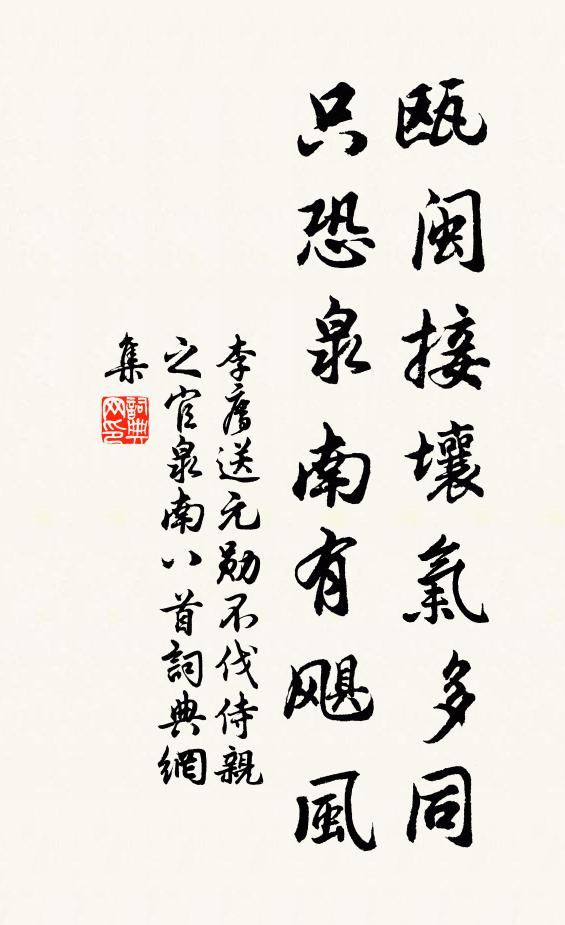 瓯闽接壤氣多同
只恐泉南有飓風
李廌送元勋不伐侍親
之官泉南八首詞典網
集
詞典网印